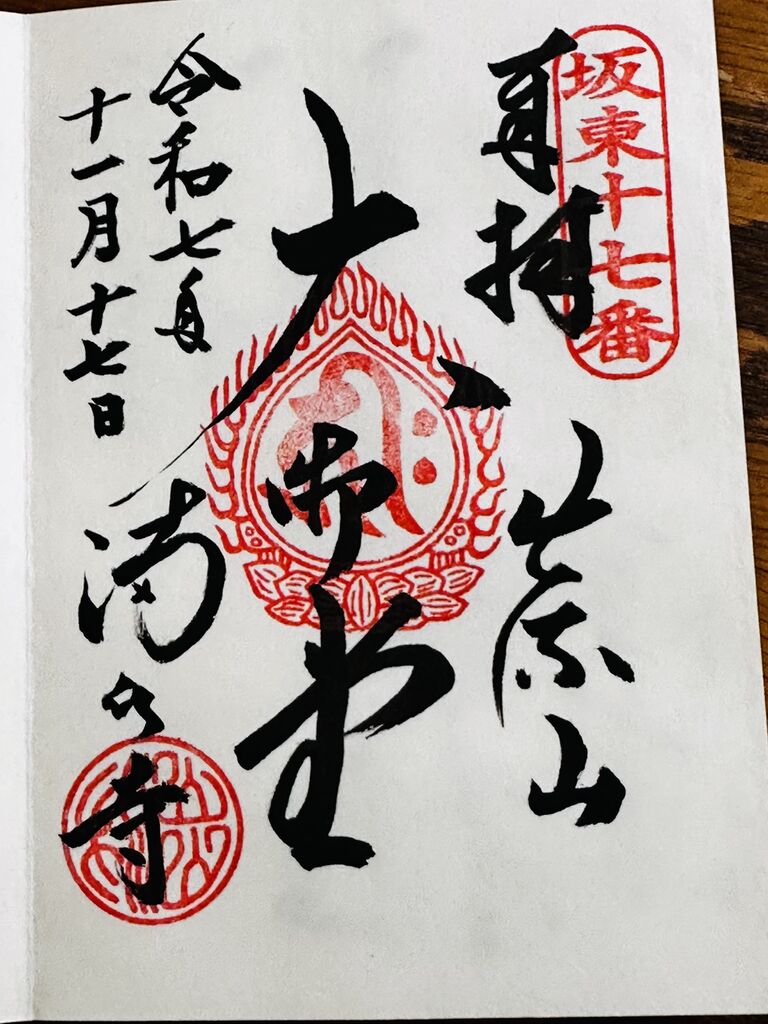 坂東十七番
奉拝
出流山
大御堂
令和七年
十一月十七日
満願寺